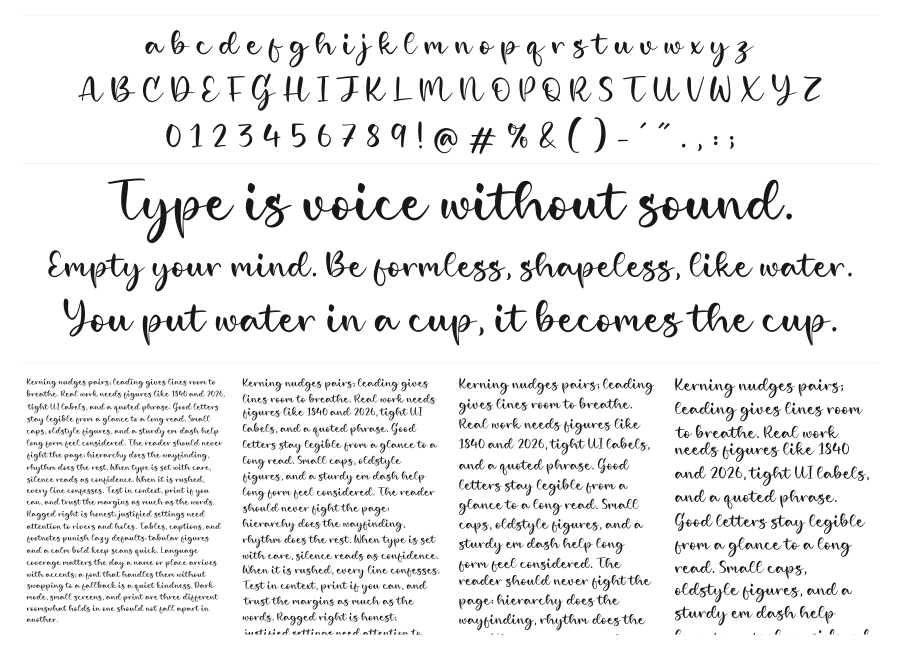 a b c d e f g h i j k l m n o p q r s t u v w x y z
A B C D E F G H I J K L M N O P Q R S T U V W X Y Z
0 1 2 3 4 5 6 7 8 9 ! @ # % & ( ) - ' " . , : ;
Type is voice without sound.
Empty your mind. Be formless, shapeless, like water.
You put water in a cup, it becomes the cup.
Kerning nudges pairs; leading gives lines room to
breathe. Real work needs figures like 1840 and 2026,
tight UI labels, and a quoted phrase. Good letters
stay legible from a glance to a long read. Small
caps, oldstyle figures, and a sturdy em dash help
long form feel considered. The reader should never
fight the page: hierarchy does the wayfinding,
rhythm does the rest. When type is set with care,
silence reads as confidence. When it is rushed,
every line confesses. Test in context, print if you
can, and trust the margins as much as the words.
Ragged right is honest; justified settings need
attention to rivers and holes. Tables, captions, and
footnotes punish lazy defaults-tabular figures
and a calm bold keep scans quick. Language
coverage matters the day a name or place arrives
with accents; a font that handles them without
swapping to a fallback is a quiet kindness. Dark
mode, small screens, and print are three different
rooms what holds in one should not fall apart in
another.
Kerning nudges pairs; leading gives
lines room to breathe. Real work needs
figures like 1840 and 2026, tight UI
labels, and a quoted phrase. Good
letters stay legible from a glance to a
long read. Small caps, oldstyle
figures, and a sturdy em dash help
long form feel considered. The reader
should never fight the page:
hierarchy does the wayfinding,
rhythm does the rest. When type is set
with care, silence reads as confidence.
When it is rushed, every line confesses.
Test in context, print if you can, and
trust the margins as much as the
words. Ragged right is honest;
justified settings need attention to
Kerning nudges pairs; leading
gives lines room to breathe.
Real work needs figures like
1840 and 2026, tight UI labels,
and a quoted phrase. Good
letters stay legible from a
glance to a long read. Small
caps, oldstyle figures, and a
sturdy em dash help long
form feel considered. The
reader should never fight the
page: hierarchy does the
wayfinding, rhythm does the
Kerning nudges pairs;
leading gives lines room
to breathe. Real work
needs figures like 1840
and 2026, tight UI labels,
and a quoted phrase.
Good letters stay legible
from a glance to a long
read. Small caps,
oldstyle figures, and a
sturdy em dash help